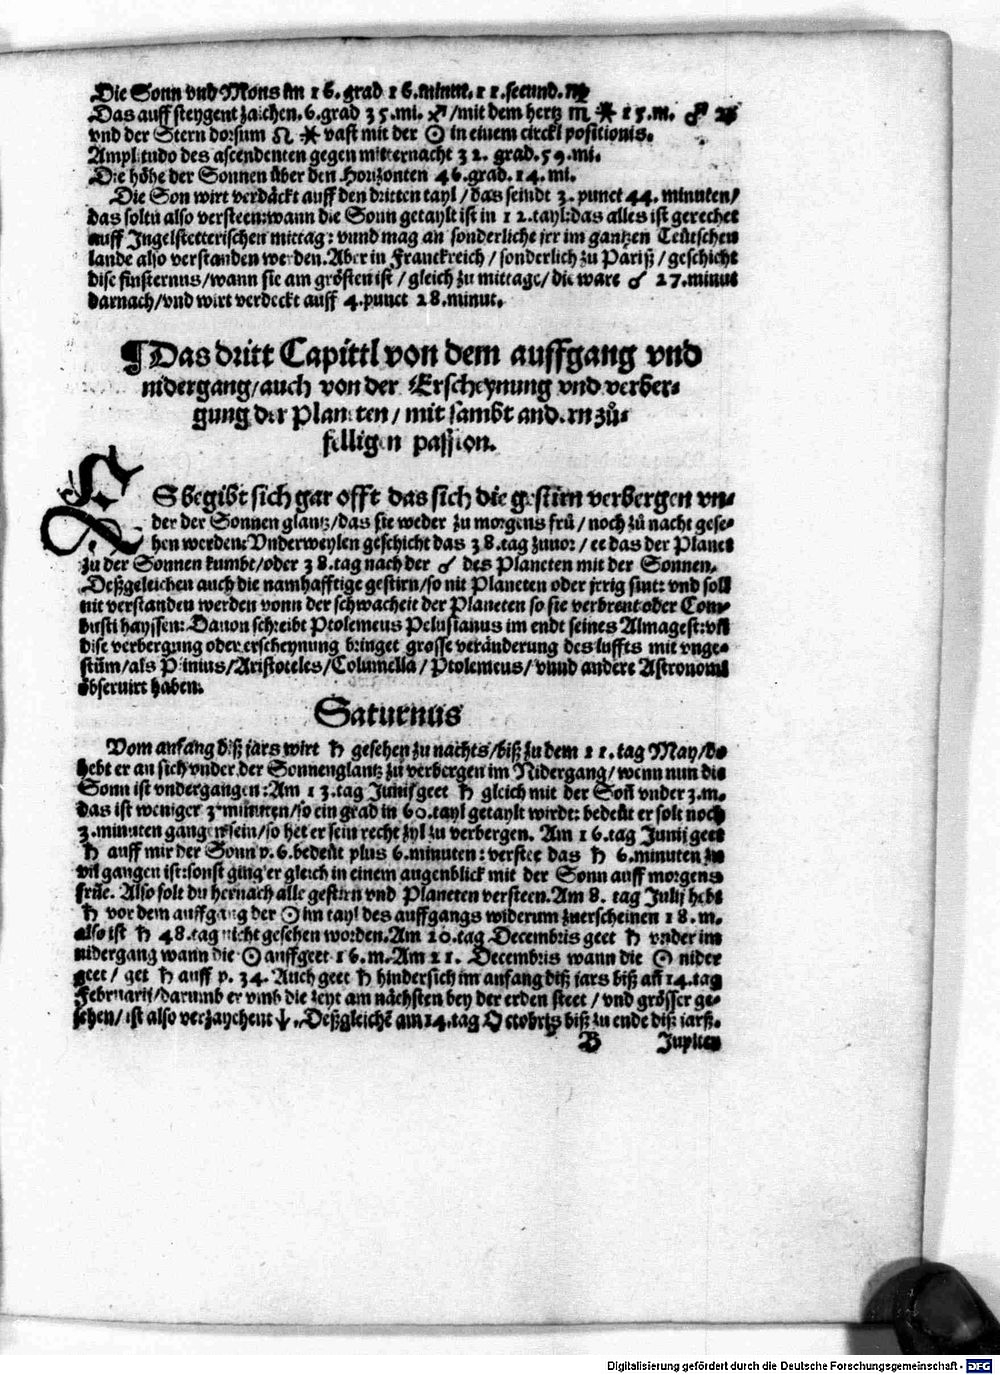 Die Sonn vnd Mons im 16. grad 16. minut. 11. secund. ♍
Das auffsteygent zaichen. 6. grad 35. mi. ♐ / mit dem hertz ♏ ✶ 15. m. ♂ ♃
vnd der Stern dorsum ♌ ✶ vast mit der ☉ in einem circkl positionis.
Amplitudo des ascendenten gegen mitternacht 32. grad. 59. mi.
Die höhe der Sonnen über den Horizonten 46. grad. 14. mi.
Die Son wirt verdäckt auff den dritten tayl / das seindt 3. punct 44. minuten /
das soltu also versteen: wann die Sonn getaylt ist in 12. tayl: das alles ist gerechet
auff Ingelstetterischen mittag: vnnd mag an sonderliche jrr im gantzen Teütschen
lande also verstanden werden. Aber in Franckreich / sonderlich zu Pariß / geschicht
dise finsternus / wann sie am grösten ist / gleich zu mittage / die ware ☌ 27. minut
darnach / vnd wirt verdeckt auff 4. punct 28. minut.
¶ Das dritt Capittl von dem auffgang vnd
nidergang / auch von der Erscheynung vnd verber-
gung der Planeten / mit sambt andern zů-
felligen passion.
ES begibt sich gar offt das sich die gestirn verbergen vn-
der der Sonnen glantz / das sie weder zu morgens frů / noch zů nacht gese-
hen werden: Vnderweylen geschicht das 38. tag zuuor / ee das der Planet
zu der Sonnen kumbt / oder 38. tag nach der ☌ des Planeten mit der Sonnen.
Deßgeleichen auch die namhafftige gestirn / so nit Planeten oder jrrig sint: vnd soll
nit verstanden werden vonn der schwacheit der Planeten so sie verbrent oder Com-
busti hayssen: Dauon schreibt Ptolemeus Pelusianus im endt seines Almagest: vñ
dise verbergung oder erscheynung bringet grosse veränderung des luffts mit vnge-
stüm / als Plinius / Aristoteles / Columella / Ptolemeus / vnnd andere Astronomi
obseruirt haben.
Saturnus
Vom anfang diß jars wirt ♄ gesehen zu nachts / biß zu dem 11. tag May / do
hebt er an sich vnder der Sonnenglantz zů verbergen im Nidergang / wenn nun die
Sonn ist vndergangen: Am 13. tag Junij geet ♄ gleich mit der Soñ vnder 3. m.
das ist weniger 3. minuten / so ein grad in 60. tayl getaylt wirdt: bedeüt er solt noch
3. minuten gangen sein / so het er sein recht zyl zu verbergen. Am 16. tag Junij geet
♄ auff mit der Sonn p. 6. bedeüt plus 6. minuten: verstee das ♄ 6. minuten zu
vil gangen ist: sonst ging er gleich in einem augenblick mit der Sonn auff morgens
früe. Also solt du hernach alle gestirn vnd Planeten versteen. Am 8. tag Julij hebt
♄ vor dem auffgang der ☉ im tayl des auffgangs widerum zuerscheinen 18. m.
also ist ♄ 48. tag nicht gesehen worden. Am 20. tag Decembris geet ♄ vnder im
nidergang wann die ☉ auffgeet 16. m. Am 21. Decembris wann die ☉ nider
geet / get ♄ auff p. 34. Auch geet ♄ hindersich im anfang diß jars biß añ 14. tag
Februarij / darumb er vmb die zeyt am nächsten bey der erden steet / vnd grösser ge-
sehen / ist also verzaychent ↓. Deßgleichẽ am 14. tag Octobris biß zu ende diß jarß.
B Jupiter
Digitalisierung gefördert durch die Deutsche Forschungsgemeinschaft - DFG